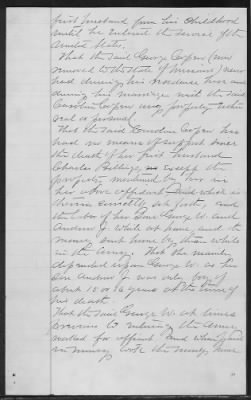 first husband from his childhood
until he entered the service of the
United States,
That the said George Cooper (now
removed to the State of Missouri) never
had during his residence here and
during his marriage with the said
Caroline Cooper any property either
real or personal
That the said Caroline Cooper has
had no means of support since
the death of her first husband
Charles except the
property mentioned by her in
her above affidavit and which is
therein correctly set forth, and
the labor of her sons George W. and
Andrew J. while at home, and the
money sent home by them while
in the Army. That she mainly
depended upon George W. as her
son Andrew J. was only a boy of
about 15 or 16 years at the time of
his death.
That the said George W. at times
previous to entering the army
worked for and when paid
in money took the money home